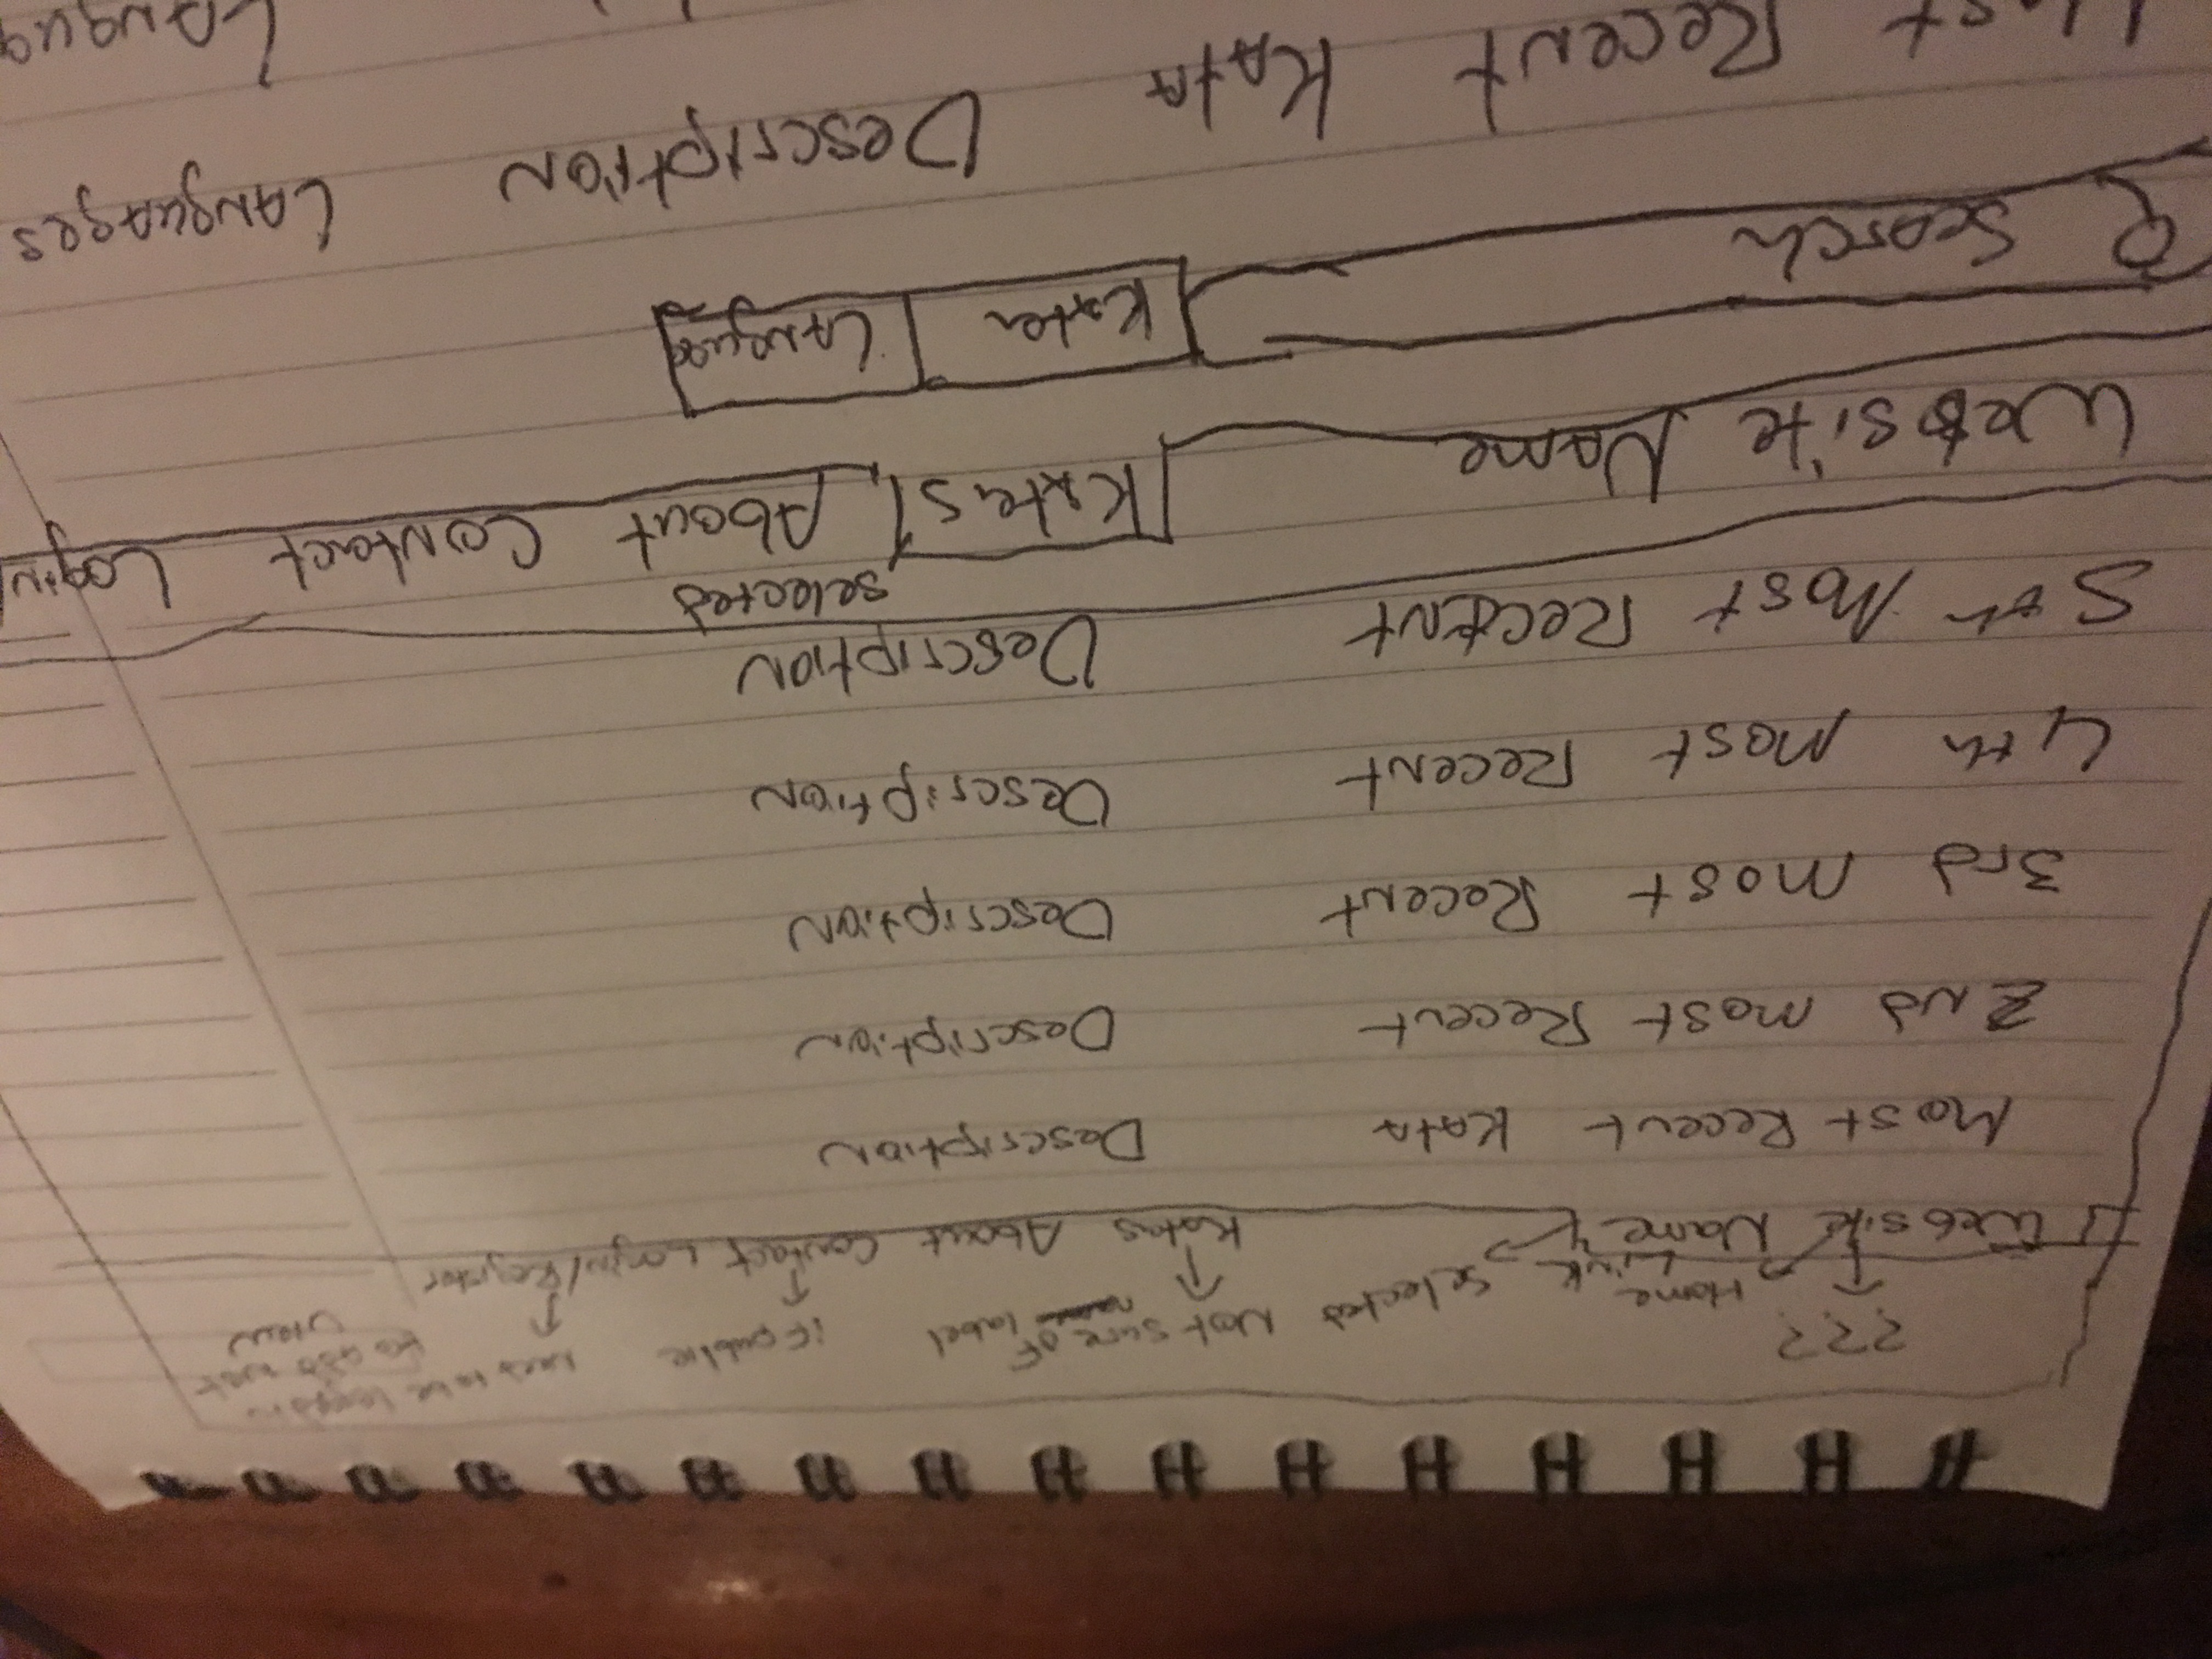 ???
Home
Link
Selected
Not sure of
label
if public
Need to be logged in
to add not
view
Website Name
Katas About Contact Login/Register
Most Recent Kata Description
2nd most Recent Description
3rd most Recent Description
4th Most Recent Description
5th Most Recent Description
selected
Website Name Katas About Contact Login/
Search Kata Languag
Most Recent Kata Description Languages
Languag